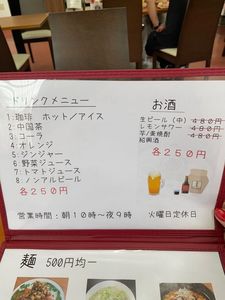 ドリンクメニュー
1:珈琲 ホット/アイス
2:中国茶
3:コーラ
4:オレンジ
5:ジンジャー
6:野菜ジュース
7:トマトジュース
8:ノンアルビール
各250円
お酒
生ビール(中) 480円
レモンサワー 480円
芋/麦焼酎 480円
紹興酒
各250円
営業時間:朝10時~夜9時 火曜日定休日
麺 500円均一